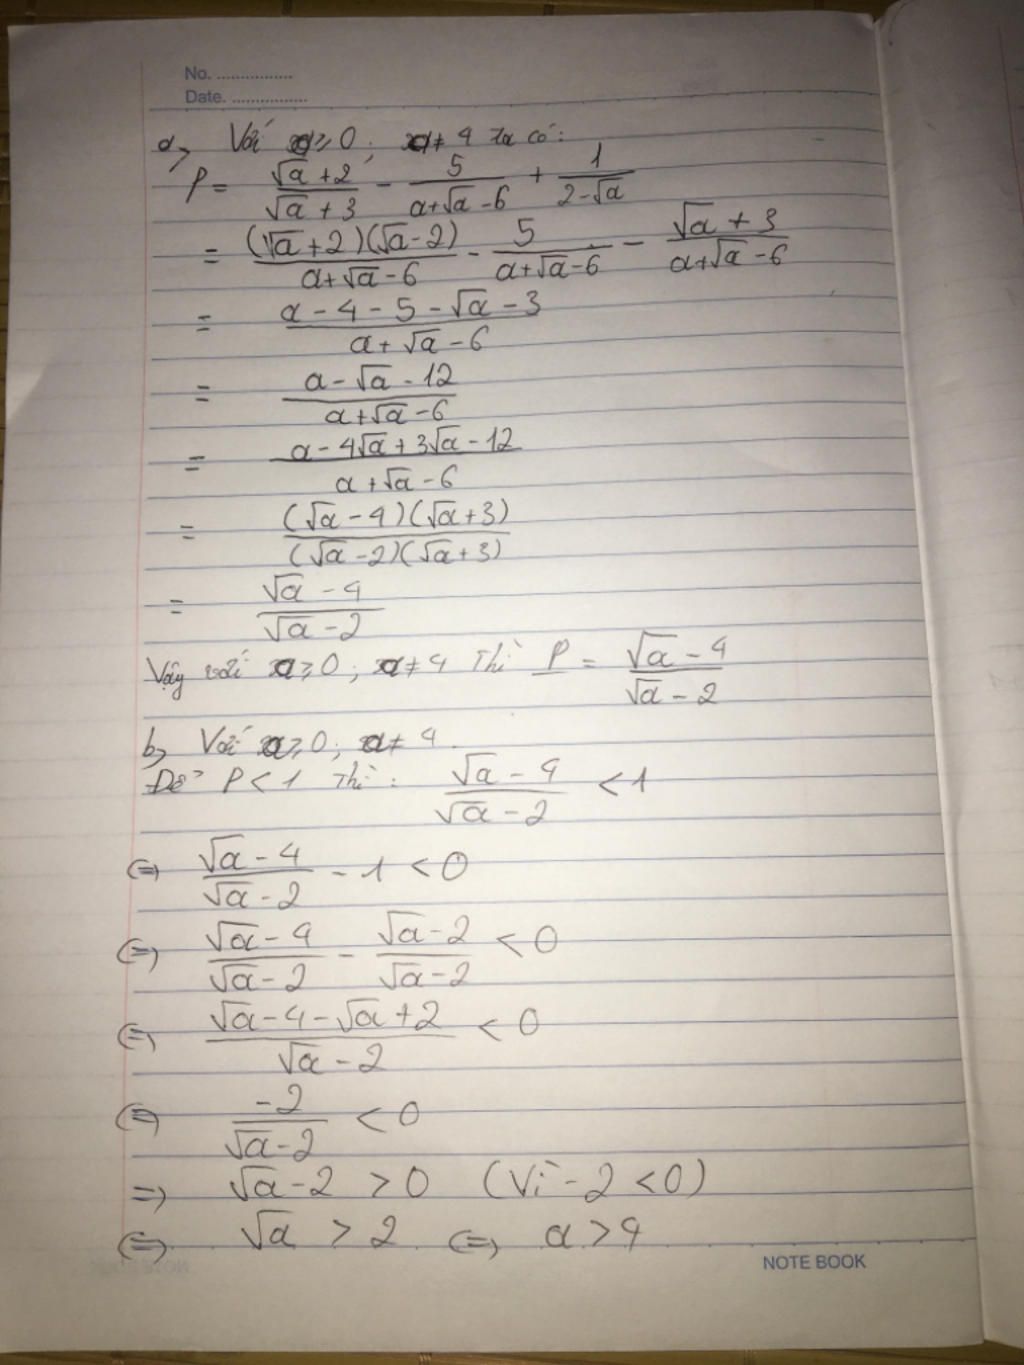 No. ................
Date. ................
a, Với a ≥ 0 ; a ≠ 4 ta có:
P = \frac{\sqrt{a}+2}{\sqrt{a}+3} - \frac{5}{a+\sqrt{a}-6} + \frac{1}{2-\sqrt{a}}
= \frac{(\sqrt{a}+2)(\sqrt{a}-2)}{a+\sqrt{a}-6} - \frac{5}{a+\sqrt{a}-6} - \frac{\sqrt{a}+3}{a+\sqrt{a}-6}
= \frac{a-4-5-\sqrt{a}-3}{a+\sqrt{a}-6}
= \frac{a-\sqrt{a}-12}{a+\sqrt{a}-6}
= \frac{a-4\sqrt{a}+3\sqrt{a}-12}{a+\sqrt{a}-6}
= \frac{(\sqrt{a}-4)(\sqrt{a}+3)}{(\sqrt{a}-2)(\sqrt{a}+3)}
= \frac{\sqrt{a}-4}{\sqrt{a}-2}
Vậy với a ≥ 0 ; a ≠ 4 Thì P = \frac{\sqrt{a}-4}{\sqrt{a}-2}
b, Với a ≥ 0 ; a ≠ 4.
Để P < 1 Thì : \frac{\sqrt{a}-4}{\sqrt{a}-2} < 1
⇔ \frac{\sqrt{a}-4}{\sqrt{a}-2} - 1 < 0
⇔ \frac{\sqrt{a}-4}{\sqrt{a}-2} - \frac{\sqrt{a}-2}{\sqrt{a}-2} < 0
⇔ \frac{\sqrt{a}-4-\sqrt{a}+2}{\sqrt{a}-2} < 0
⇔ \frac{-2}{\sqrt{a}-2} < 0
⇒ \sqrt{a}-2 > 0 (Vì -2 < 0)
⇔ \sqrt{a} > 2 ⇔ a > 4
NOTE BOOK